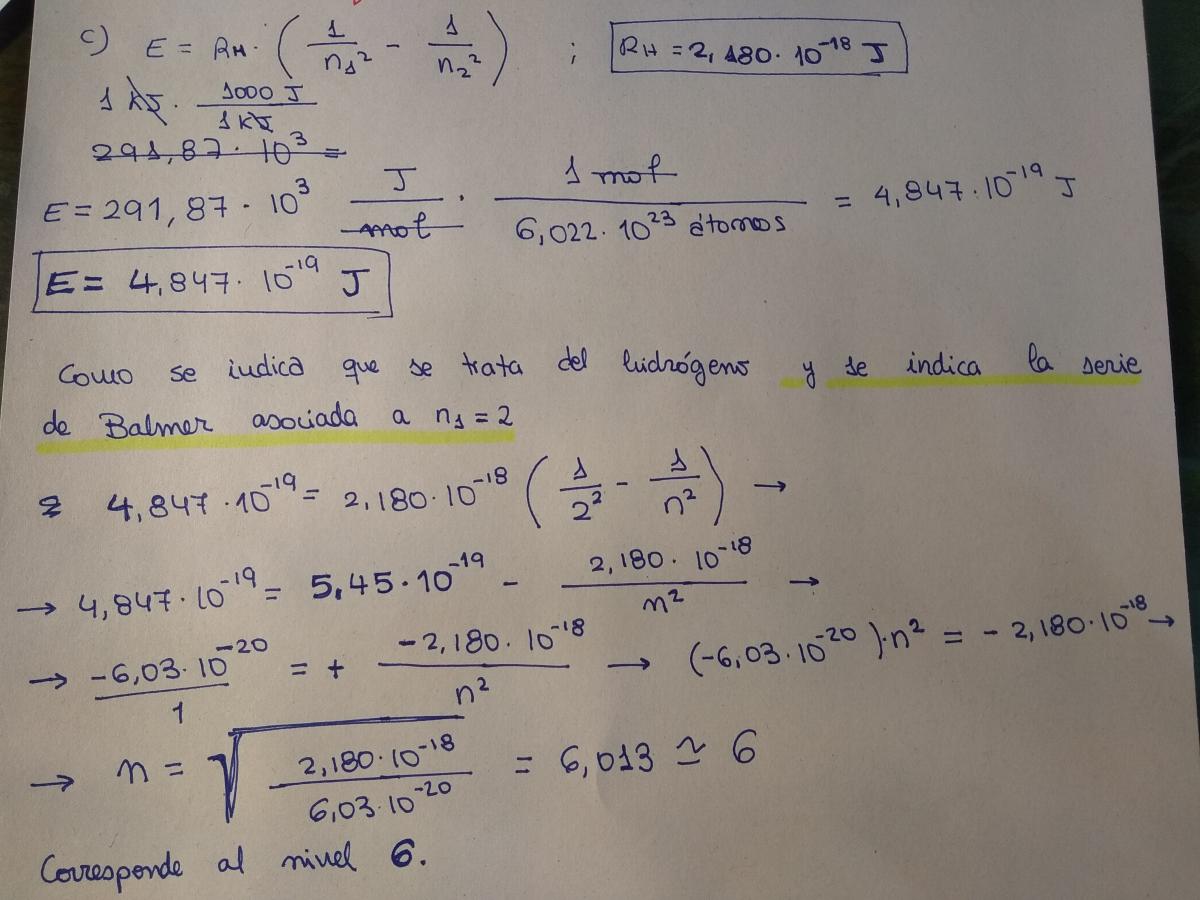 c) E = RH · ( 1/n₁² - 1/n₂² ) ; RH = 2,180 · 10⁻¹⁸ J
1 KJ · 1000 J / 1 KJ
291,87 · 10³ =
E = 291,87 · 10³ J/mol · 1 mol / 6,022 · 10²³ átomos = 4,847 · 10⁻¹⁹ J
E = 4,847 · 10⁻¹⁹ J
Como se indica que se trata del hidrógeno y se indica la serie
de Balmer asociada a n₁ = 2
4,847 · 10⁻¹⁹ = 2,180 · 10⁻¹⁸ ( 1/2² - 1/n² ) →
→ 4,847 · 10⁻¹⁹ = 5,45 · 10⁻¹⁹ - 2,180 · 10⁻¹⁸ / n² →
→ -6,03 · 10⁻²⁰ / 1 = + -2,180 · 10⁻¹⁸ / n² → (-6,03 · 10⁻²⁰) · n² = - 2,180 · 10⁻¹⁸ →
→ n = √( 2,180 · 10⁻¹⁸ / 6,03 · 10⁻²⁰ ) = 6,013 ≃ 6
Corresponde al nivel 6.